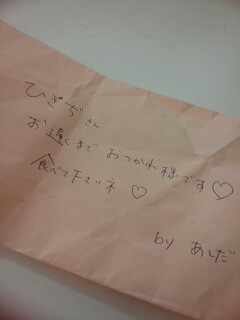 ひぎぢさん
お遅くまで おつかれ様です♡
食べて下さいネ ♡
by あしだ